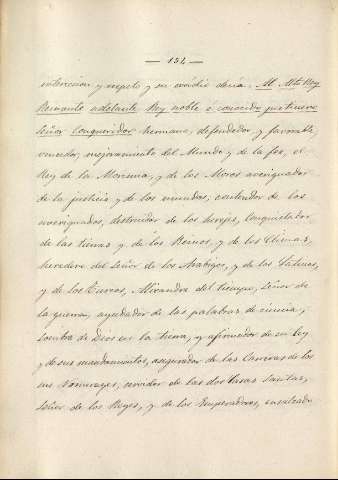 — 152 —
intercesion y respeto y su medio decia: Al Alto Rey
Reinante adelante Rey noble é conocido justiciero
Señor Conqueridor hermano, defendedor y favorable,
vencedor, mejoramiento del Mundo y de la fee, el
Rey de la Morisma, y de los Moros averiguador
de la justicia y de los mundos, contendor de los
averiguados, destruidor de los herejes, Conquistador
de las tierras y de los Reinos, y de los Climas,
heredero del Señor de los Arabigos, y de los Latinos,
y de los Turcos, Alixandre del tiempo, Señor de
la guerra, ayudador de las palabras de ciencia,
Sombra de Dios en la tierra, y afirmador de su Ley
y de sus mandamientos, asegurador de las Carreras de los
sus Romerages, servidor de las dos Casas Santas,
Señor de los Reyes, y de los Emperadores, ensalzado